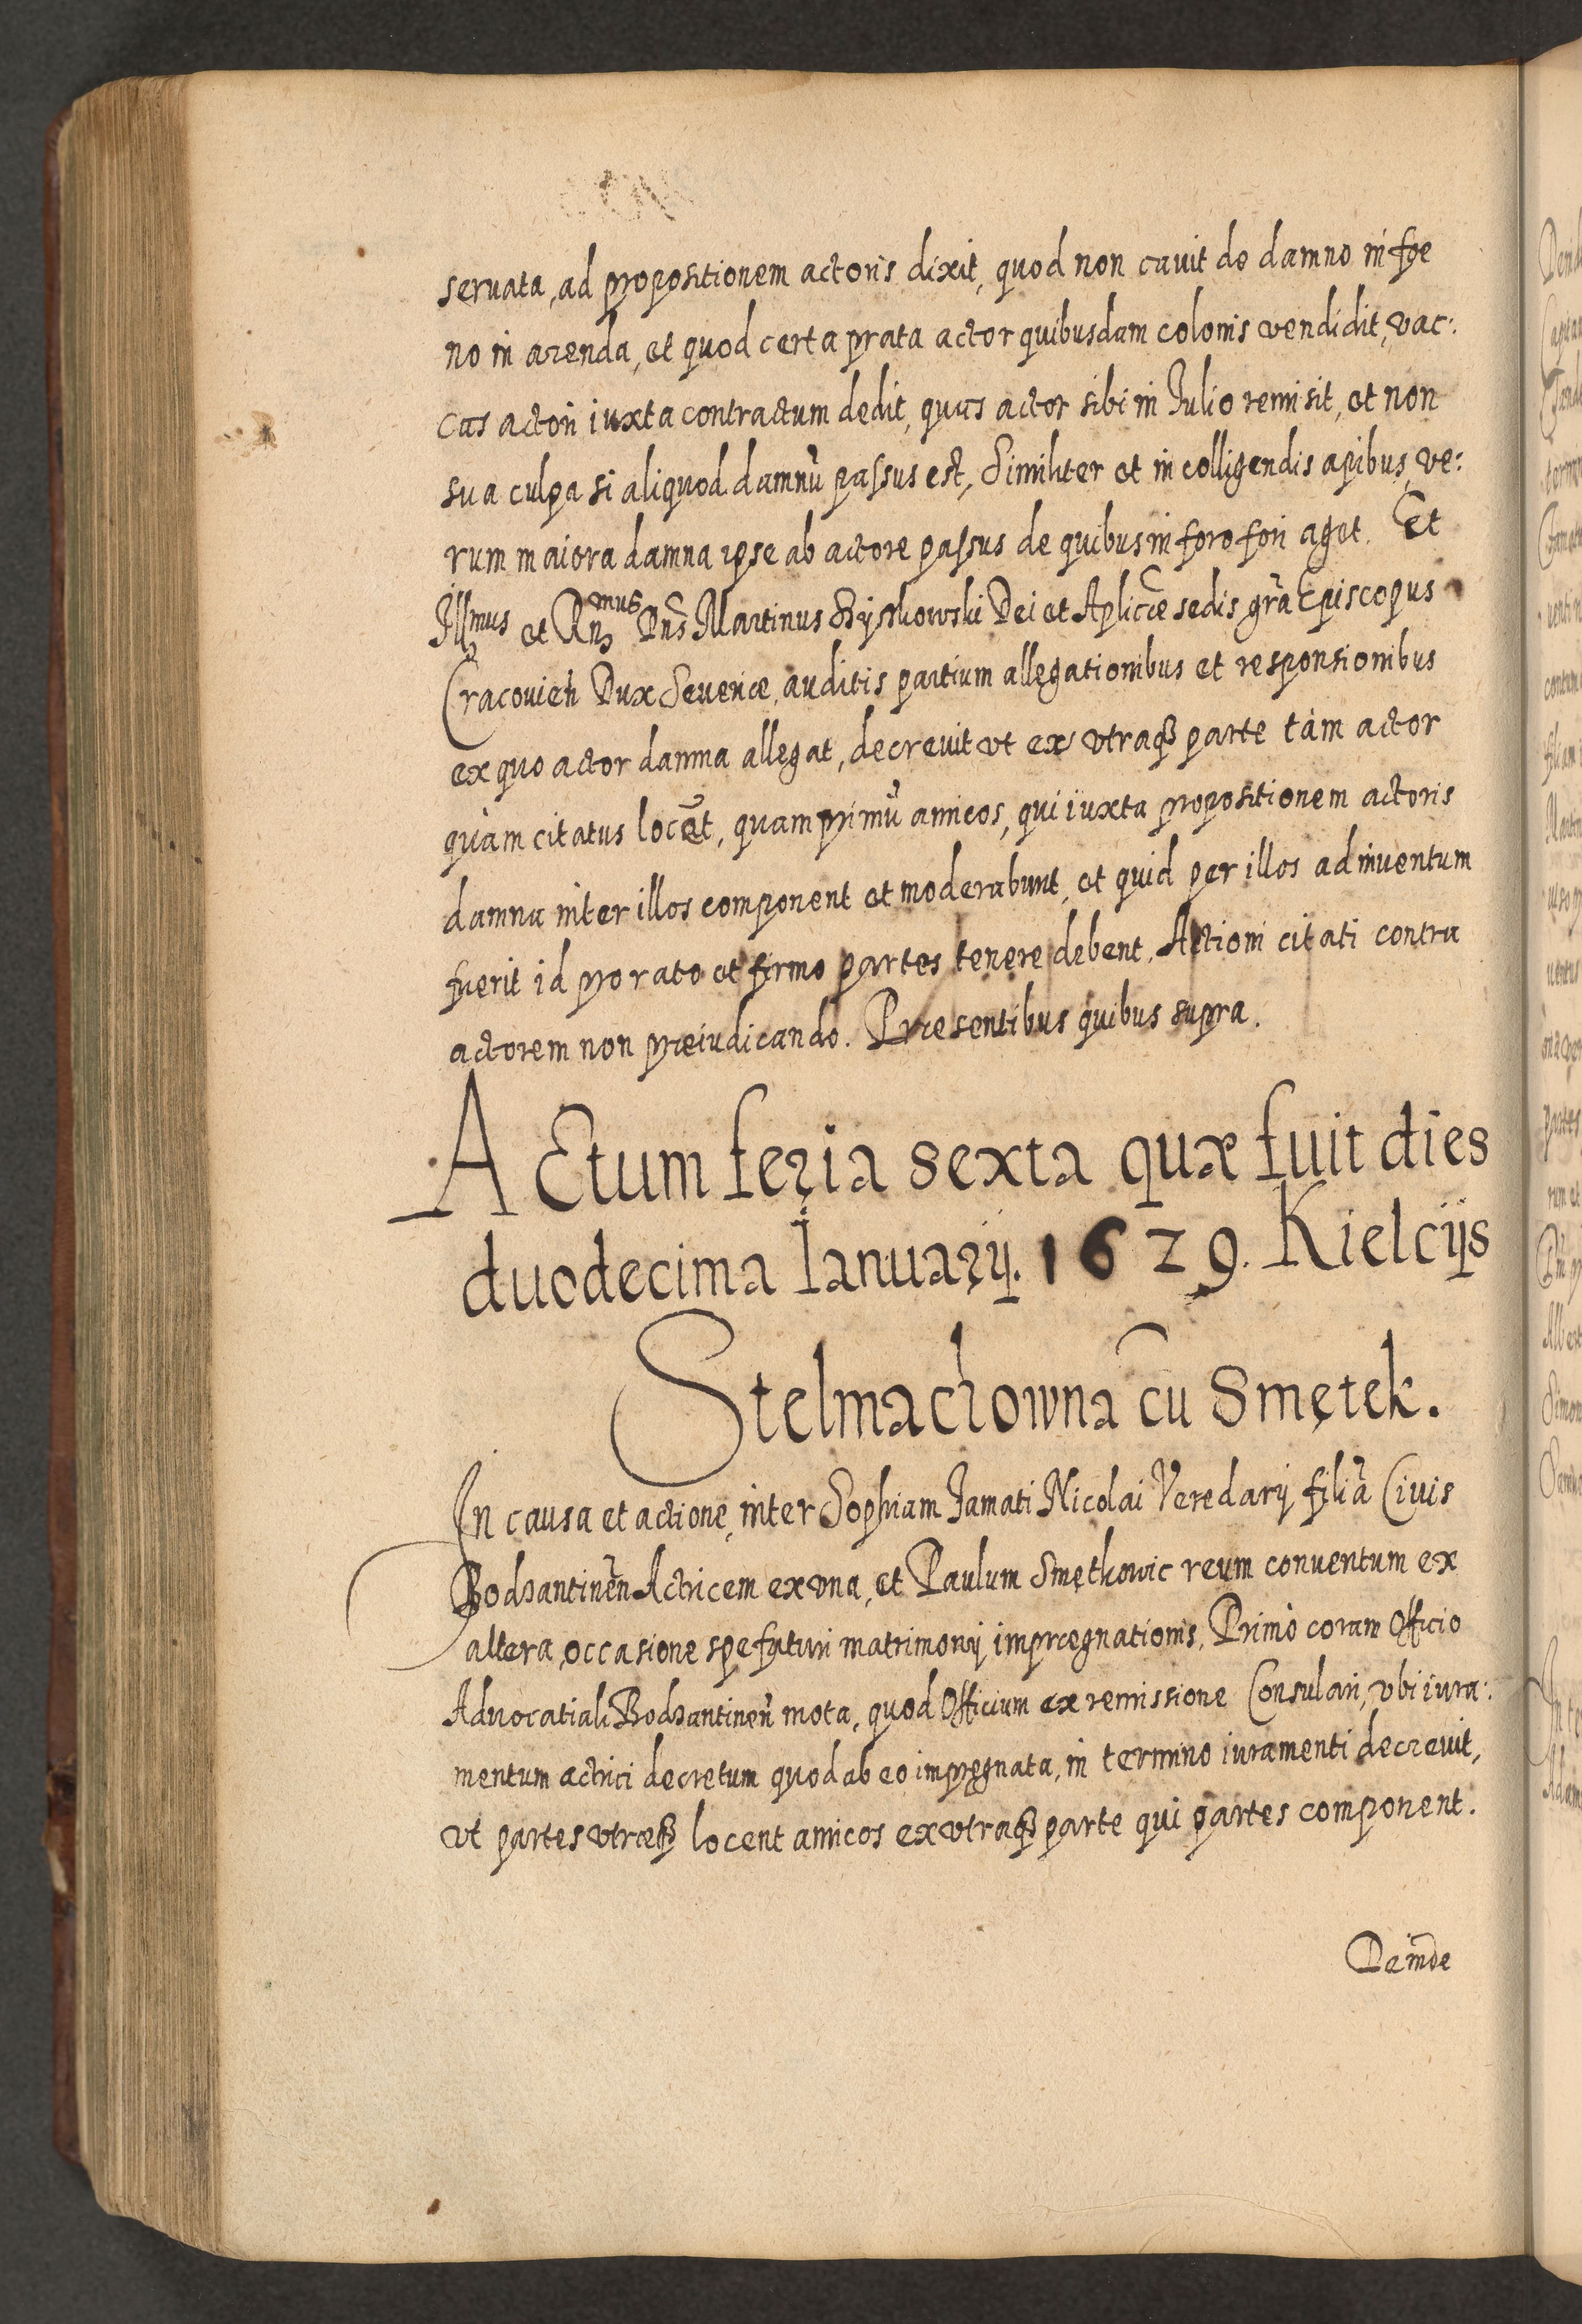 seruata, ad propositionem actoris dixit, quod non cauit de damno in foe
no in arenda, et quod certa prata actor quibusdam colonis vendidit, vac:
cas actori iuxta contractum dedit, quas actor sibi in Julio remisit, et non
sua culpa si aliquod damnũ passus est, Similiter et in colligendis apibus, ve:
rum maiora damna ipse ab actore passus de quibus in foro fori aget. Et
Illmus et Rnmus Dns Martinus Szyszkowski Dei et Aplicæ sedis gr̃a Episcopus
Cracovien Dux Seueriæ, auditis partium allegationibus et responsionibus
ex quo actor damna allegat, decreuit vt ex vtraq3 parte tàm actor
quàm citatus locẽt, quamprimũ amicos, qui iuxta propositionem actoris
damna inter illos component et moderabunt, et quid per illos adinuentum
fuerit id pro rato et firmo partes tenere debent. Actioni citati contra
actorem non præiudicando. Præsentibus quibus supra.
Actum feria sexta quæ fuit dies
duodecima Ianuarij. 1629. Kielcijs
Stelmachowna cũ Smętek.
In causa et actione, inter Sophiam Famati Nicolai Veredarij filiã Ciuis
Bodzantineñ Actricem ex vna, et Paulum Smętkowic reum conuentum ex
altera, occasione spe futuri matrimonij imprægnationis, Primò coram Officio
Aduocatiali Bodzantineñ mota, quod Officium ex remissione Consulari, vbi iura:
mentum actrici decretum quod ab eo impręgnata, in termino iuramenti decreuit,
vt partes vtræq3 locent amicos ex vtraq3 parte qui partes component.
Deinde